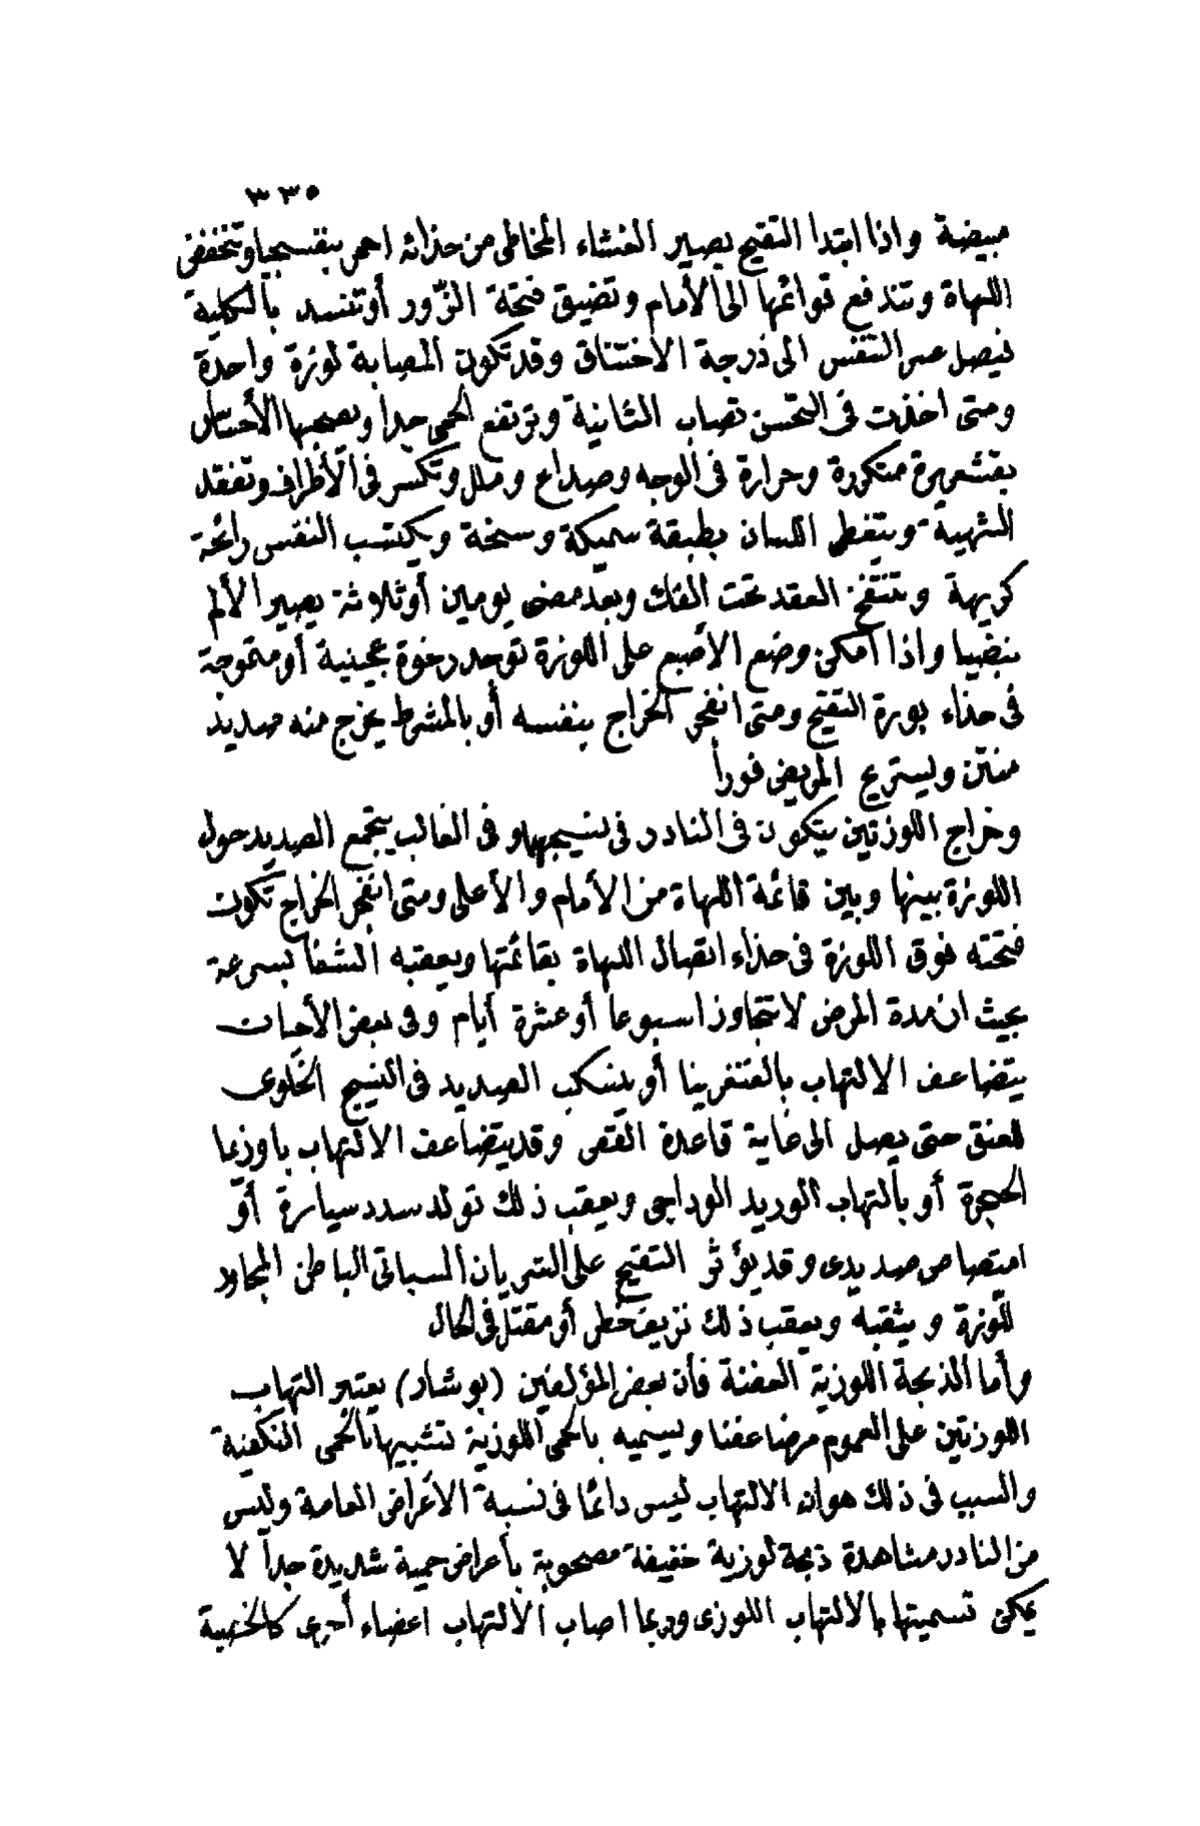 ٣٣٥
مبيضة واذا ابتدا التقيح يصير الغشاء المخاطى من حذائه احمر بنفسجيا وتنخفض
اللهاة وتندفع قوائمها الى الأمام وتضيق فتحة الزور أو تنسد بالكلية
فيصل عسر التنفس الى درجة الاختناق وقد تكون المصابة لوزة واحدة
ومتى اخذت فى التحسن تصاب الثانية وترتفع الحمى جدا ويصحبها الأحساس
بقشعريرة متكررة وحرارة فى الوجه وصداع وملل وتكسر فى الأطراف وتفقد
الشهية ويتغطى اللسان بطبقة سميكة وسخة ويكتسب النفس رائحة
كريهة وتنتفخ العقد تحت الفك وبعد مضى يومين أو ثلاثة يصير الألم
نبضيا واذا امكن وضع الأصبع على اللوزة توجد رخوة عجينية أو متموجة
فى حذاء بورة التقيح ومتى انفجر الخراج بنفسه أو بالمشرط يخرج منه صديد
منتن ويستريح المريض فورا
وخراج اللوزتين يتكون فى النادر فى نسيجهما وفى الغالب يتجمع الصديد حول
اللوزة بينها وبين قائمة اللهاة من الأمام والأعلى ومتى انفجر الخراج تكون
فتحته فوق اللوزة فى حذاء اتصال اللهاة بقائمتها ويعقبه الشفا بسرعة
بحيث ان مدة المرض لا تتجاوز اسبوعا أو عشرة أيام وفى بعض الأحيان
يتضاعف الالتهاب بالغنغرينا أو ينسكب الصديد فى النسيج الخلوى
للعنق حتى يصل الى غاية قاعدة القص وقد يتضاعف الالتهاب باوزيما
الحنجرة أو بالتهاب الوريد الوداجى ويعقب ذلك تولد سدد سيارة أو
امتصاص صديدى وقد يؤثر التقيح على الشريان السباتى الباطن المجاور
للوزة ويثقبه ويعقب ذلك نزيف خطر أو مقتل فى الحال
وأما الذبحة اللوزية العفنة فأن بعض المؤلفين (بوشار) يعتبر التهاب
اللوزتين على العموم مرضا عفنا ويسميه بالحمى اللوزية تشبيها بالحمى النكفية
والسبب فى ذلك هو ان الالتهاب ليس دائما فى نسبة الأعراض العامة وليس
من النادر مشاهدة ذبحة لوزية خفيفة مصحوبة بأعراض حمية شديدة جدا لا
يمكن تسميتها بالالتهاب اللوزى وربما اصاب الالتهاب اعضاء أخرى كالخصية